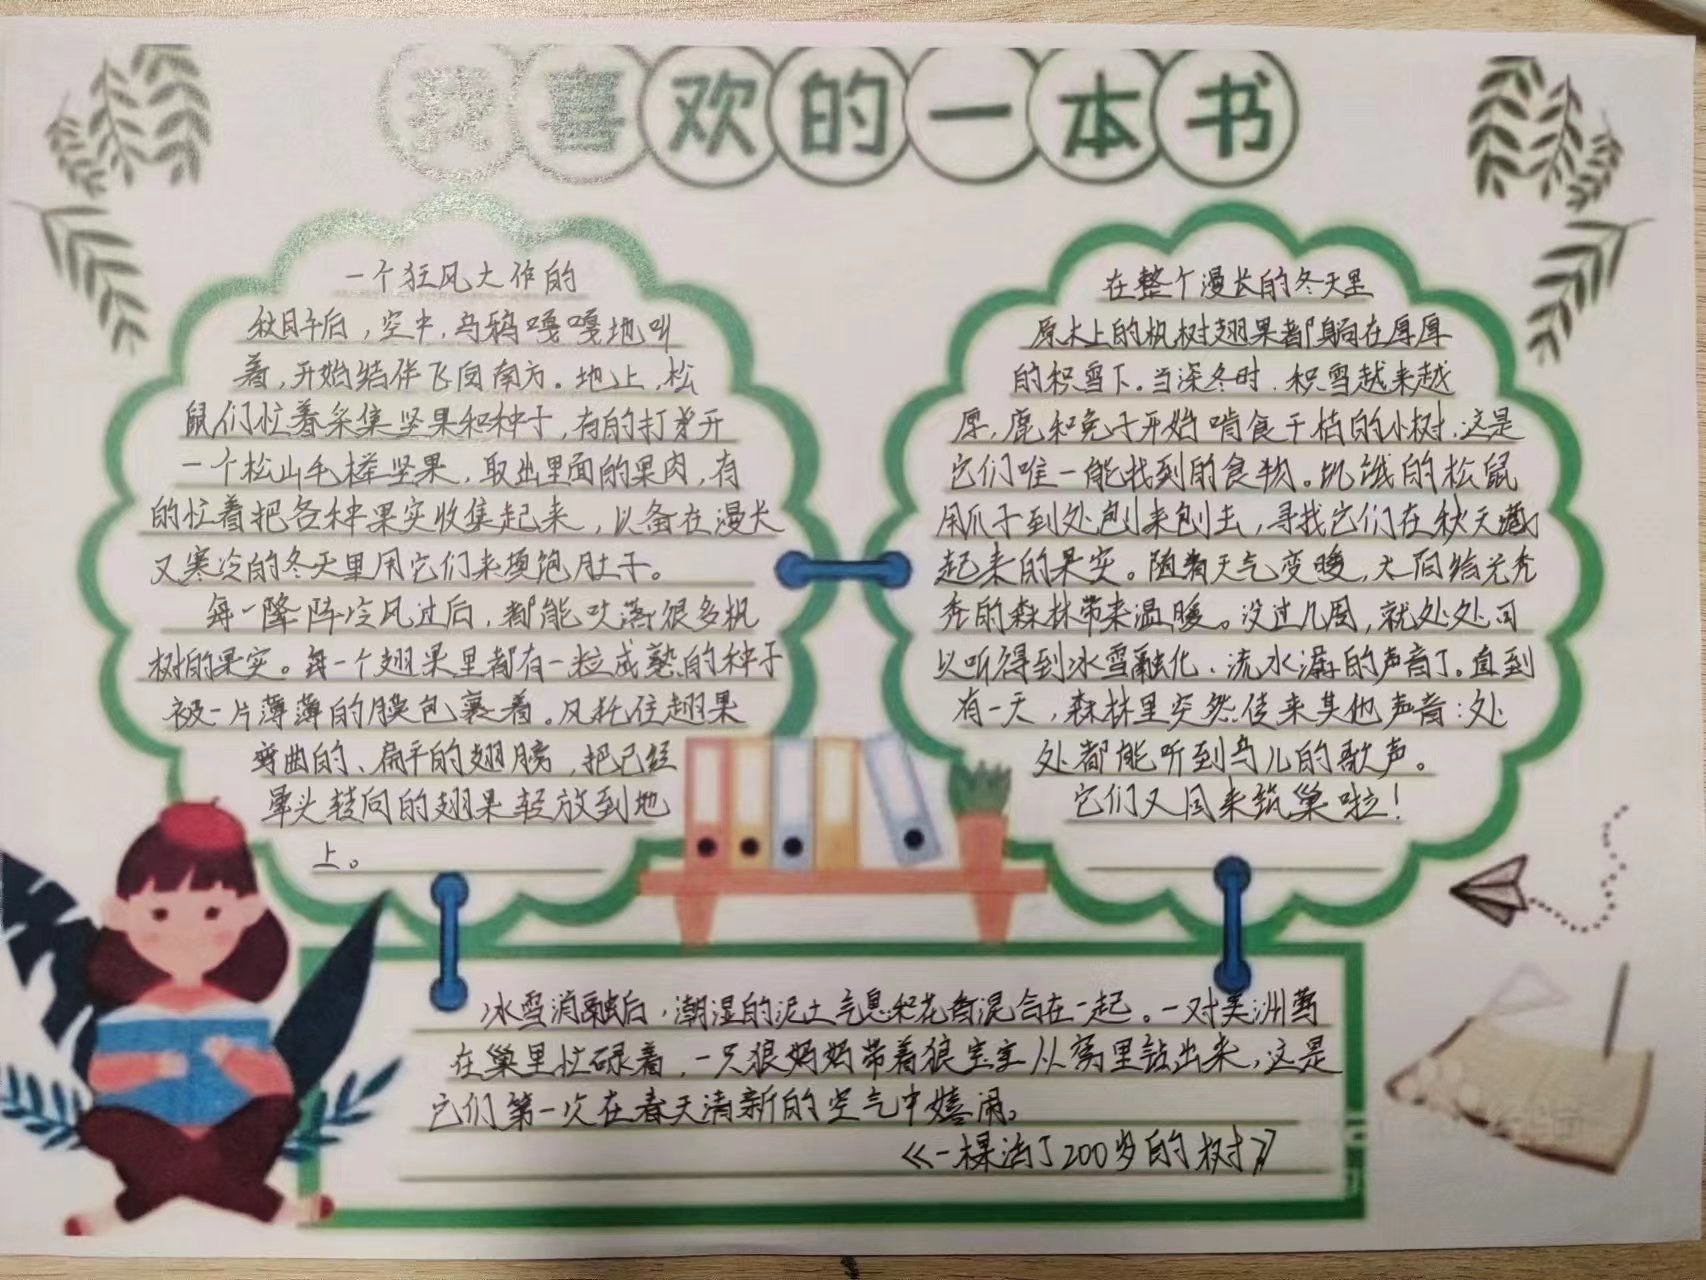 我喜欢的一本书
一个狂风大作的
秋日午后，空中，乌鸦嘎嘎地叫
着，开始结伴飞向南方。地上，松
鼠们忙着采集坚果和种子，有的打开
一个松山毛榉坚果，取出里面的果肉，有
的忙着把各种果实收集起来，以备在漫长
又寒冷的冬天里用它们来填饱肚子。
每一阵冷风过后，都能吹落很多枫
树的果实。每一个翅果里都有一粒成熟的种子
被一片薄薄的膜包裹着。风托住翅果
弯曲的、扁平的翅膀，把已经
晕头转向的翅果轻放到地
上。
在整个漫长的冬天里
原木上的枫树翅果都躺在厚厚
的积雪下。当深冬时，积雪越来越
厚，鹿和兔子开始啃食干枯的小树，这是
它们唯一能找到的食物。饥饿的松鼠
用爪子到处刨来刨去，寻找它们在秋天藏
起来的果实。随着天气变暖，太阳给光秃
秃的森林带来温暖。没过几周，就处处可
以听得到冰雪融化、流水潺潺的声音了。直到
有一天，森林里突然传来其他声音：处
处都能听到鸟儿的歌声。
它们又回来筑巢啦！
冰雪消融后，潮湿的泥土气息和花香混合在一起。一对美洲莺
在巢里忙碌着，一只狼妈妈带着狼宝宝从窝里钻出来，这是
它们第一次在春天清新的空气中嬉闹。
《一棵活了200岁的树》